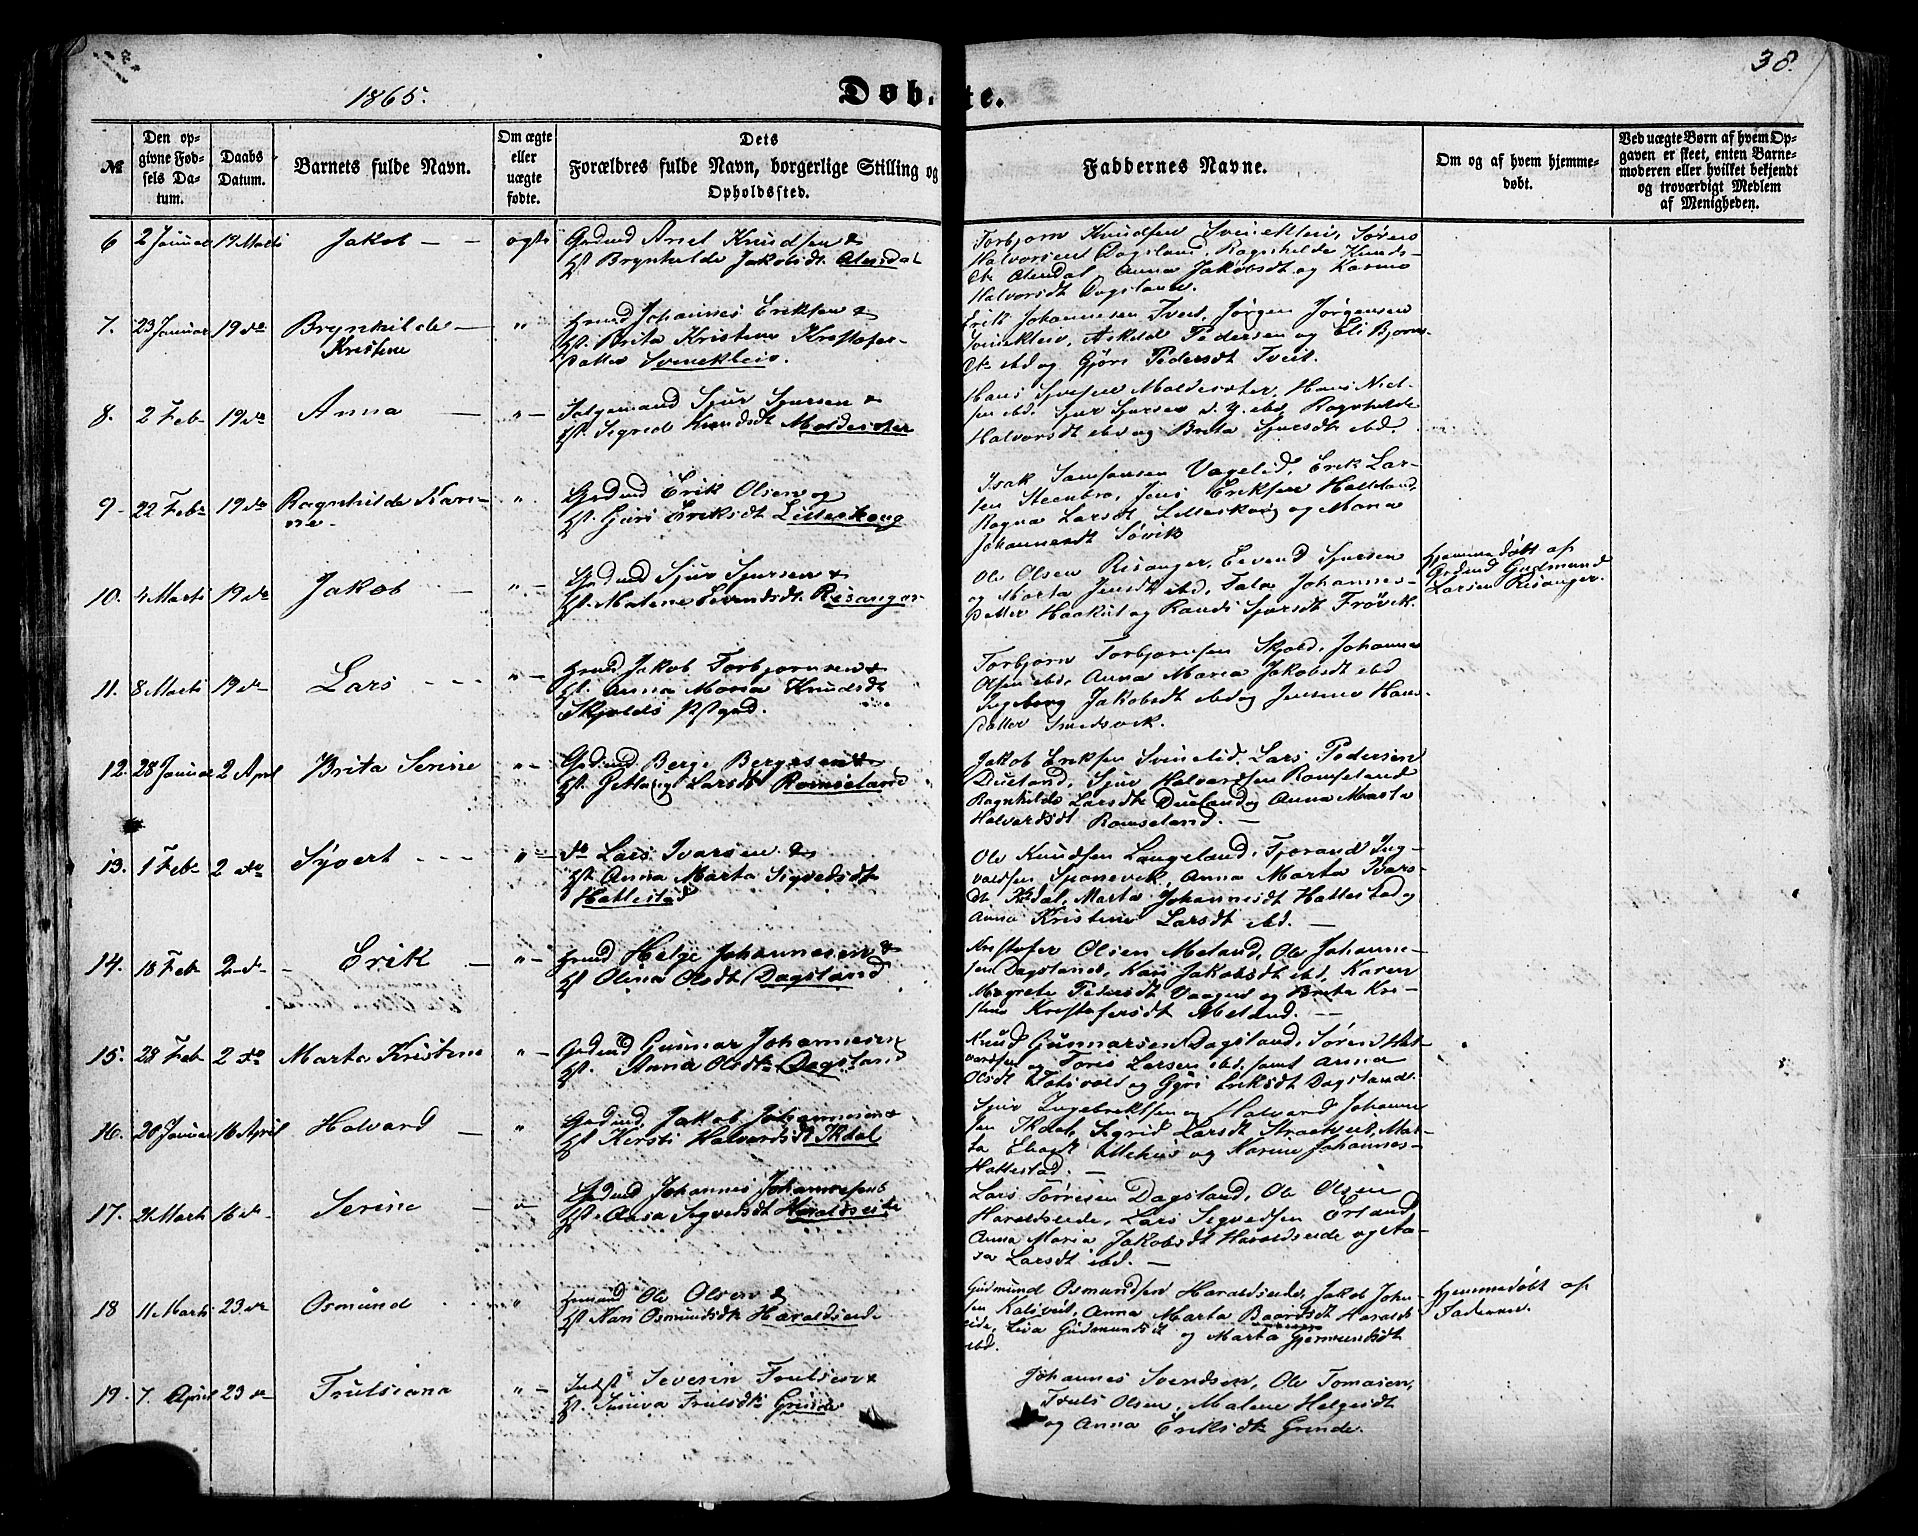 38.
1865.
Døb te.
№
Den op-
givne Fød-
sels Da-
tum.
Daabs
Datum.
Barnets fulde Navn.
Om ægte
eller
uægte
fødte.
Dets
Forældres fulde Navn, borgerlige Stilling og
Opholdssted.
Faddernes Navne.
Om og af hvem hjemme-
døbt.
Ved uægte Børn af hvem Op-
gaven er skeet, enten Barne-
moderen eller hvilket bekjendt
og troværdigt Medlem
af Menigheden.
6 2 Januar 19 Marts Jakob ægte Grdmd Knudsen &
Hst Brynhilde Jakobsdt. Alendal
Torbjørn Knudsen Svinekleiv, Søren
Halvorsen Dagsland, Ragnhilde Knuds-
dt. Alendal, Anna Jakobsdt og Karine
Halvorsdt Dagsland.
7. 23 Januar 19 do Brynhilde
Kristene
" Hmd Johannes Eriksen &
Hst. Brita Kristene Kristofer-
datter Svinekleiv.
Erik Johannesen Tveit, Jørgen Jørgensen
Svinekleiv, Askild Pedersen og Eli Bjorns-
dt. ibd og Gjøri Pedersdt Tveit.
8. 2 Feb 19 do Anna " Sjur Sjursen &
Hst. Sigred Knudsdt Molde
Hans Hans Niel-
sen ibd. Sjur Sjursen d. y. ibd, Ragnhilde
Halvorsdt ibd og Brita Sjursdt ibd.
9 22 Febr 19 do Ragnhilde Kari-
ne
" Grdmd Erik Olsen og
Hst. Guri Eriksdt Lilleskog
Isak Samsonsen Vagelid, Erik Lar-
sen Steenbro, Jens Eriksen
Ragna Larsdt Lilleskog og Maria
Johannesdt Søvik
10. 4 Marts 19 do Jakob " Grdmd Sjur Sjursen &
Hst. Malene Eivendsdt. Risanger
Ole Olsen Risanger, Eevend Sjursen
og Marta Jensdt ibd, Johannes-
datter Haakul og Randi Sjursdt Frøvik.
Hjemmedøbt af
Grdmd Gudmund
Larsen Risanger.
11. 8 Marts 19 do Lars " Hmd Jakob Torbjornsen &
Hst. Anna Maria Knudsdt
Skjolds Pstgrd.
Torbjørn Torbjørnsen Skjold, Johannes
Olsen ibd, Anna Maria Jakobsdt ibd
Ingeborg Jakobsdt ibd og Jensine Hans-
datter Smedsvik.
12. 28 Januar 2 April Brita Serine " Grdmd Berge Bergesen &
Hst. Larsdt Romseland
Jakob Eriksen Svinelid, Lars Pedersen
Dueland, Sjur Halvardsen Romseland
Ragnhilde Larsdt Dueland og Anna Marta
Halvardsdt Romseland.
13. 1 Feb 2 do Syvert " do Lars Ivarsen &
Hst Anna Marta Sigvedsdt
Hattestad
Ole Knudsen Langeland, Tjorand Ing-
valdsen Sponevik, Anna Marta Ivars-
dt Marta Johannesdt Hattestad og
Anna Kristene Larsdt ibd.
14. 18 Feb 2 do Erik " Hmd Helge Johannesen &
Hst Olina Olsdt Dagsland
Kristofer Olsen Meland, Ole Johanne-
sen Dagsland, Kari Jakobsdt ibd, Karen
Magrete Pedersdt Vaagen og Brita Kri-
stine Kristofersdt Meland.
15. 28 Feb 2 do Marta Kristene " Grdmd Gunnar Johannesen
Hst. Anna Olsdt Dagsland
Knud Gunnarsen Dagsland, Søren Hal-
vardsen og Toris Larsen ibd, samt Anna
Olsdt og Gyri Eriksdt Dagsland.
16. 20 Januar 16 April Halvard " Grdmd Jakob Johannesen &
Hst Kirsti Halvardsdt Ikdal
Sjur Ingebriktsen og Halvard Johanne
sen Ikdal, Sigrid Larsdt Mar-
ta Ollehus og Karine Johannes-
Hattestad.
17. 21 Marts 16 do Serine " Grdmd Johannes Johannesen
Hst. Sigvedsdt Haraldseide
Lars Tørresen Dagsland, Ole Olsen
Haraldseide, Lars Sigvedsen Erland
Anna Maria Jakobsdt Haraldseide og Aa-
sa Larsdt ibd.
18 11 Marts 23 do Osmund " Hmand Ole Olsen &
Hst Kari Osmundsdt Haraldseide
Gudmund Osmundsen Haraldseide, Jakob Joh-
sen Anna Marta Baardsdt Haralds
eide, Lisa Gudmundsdt og Marta Gjermundsdt
ibd.
Hjemmedøbt af
Faderen.
19. 7. April 23 do Trulsiana " Indst Severin Trulsen &
Hst. Trulsdt Grinde
Johannes Svendsen, Ole Tomasen,
Truls Olsen, Malene Helgesdt
og Anna Eriksdt Grinde.